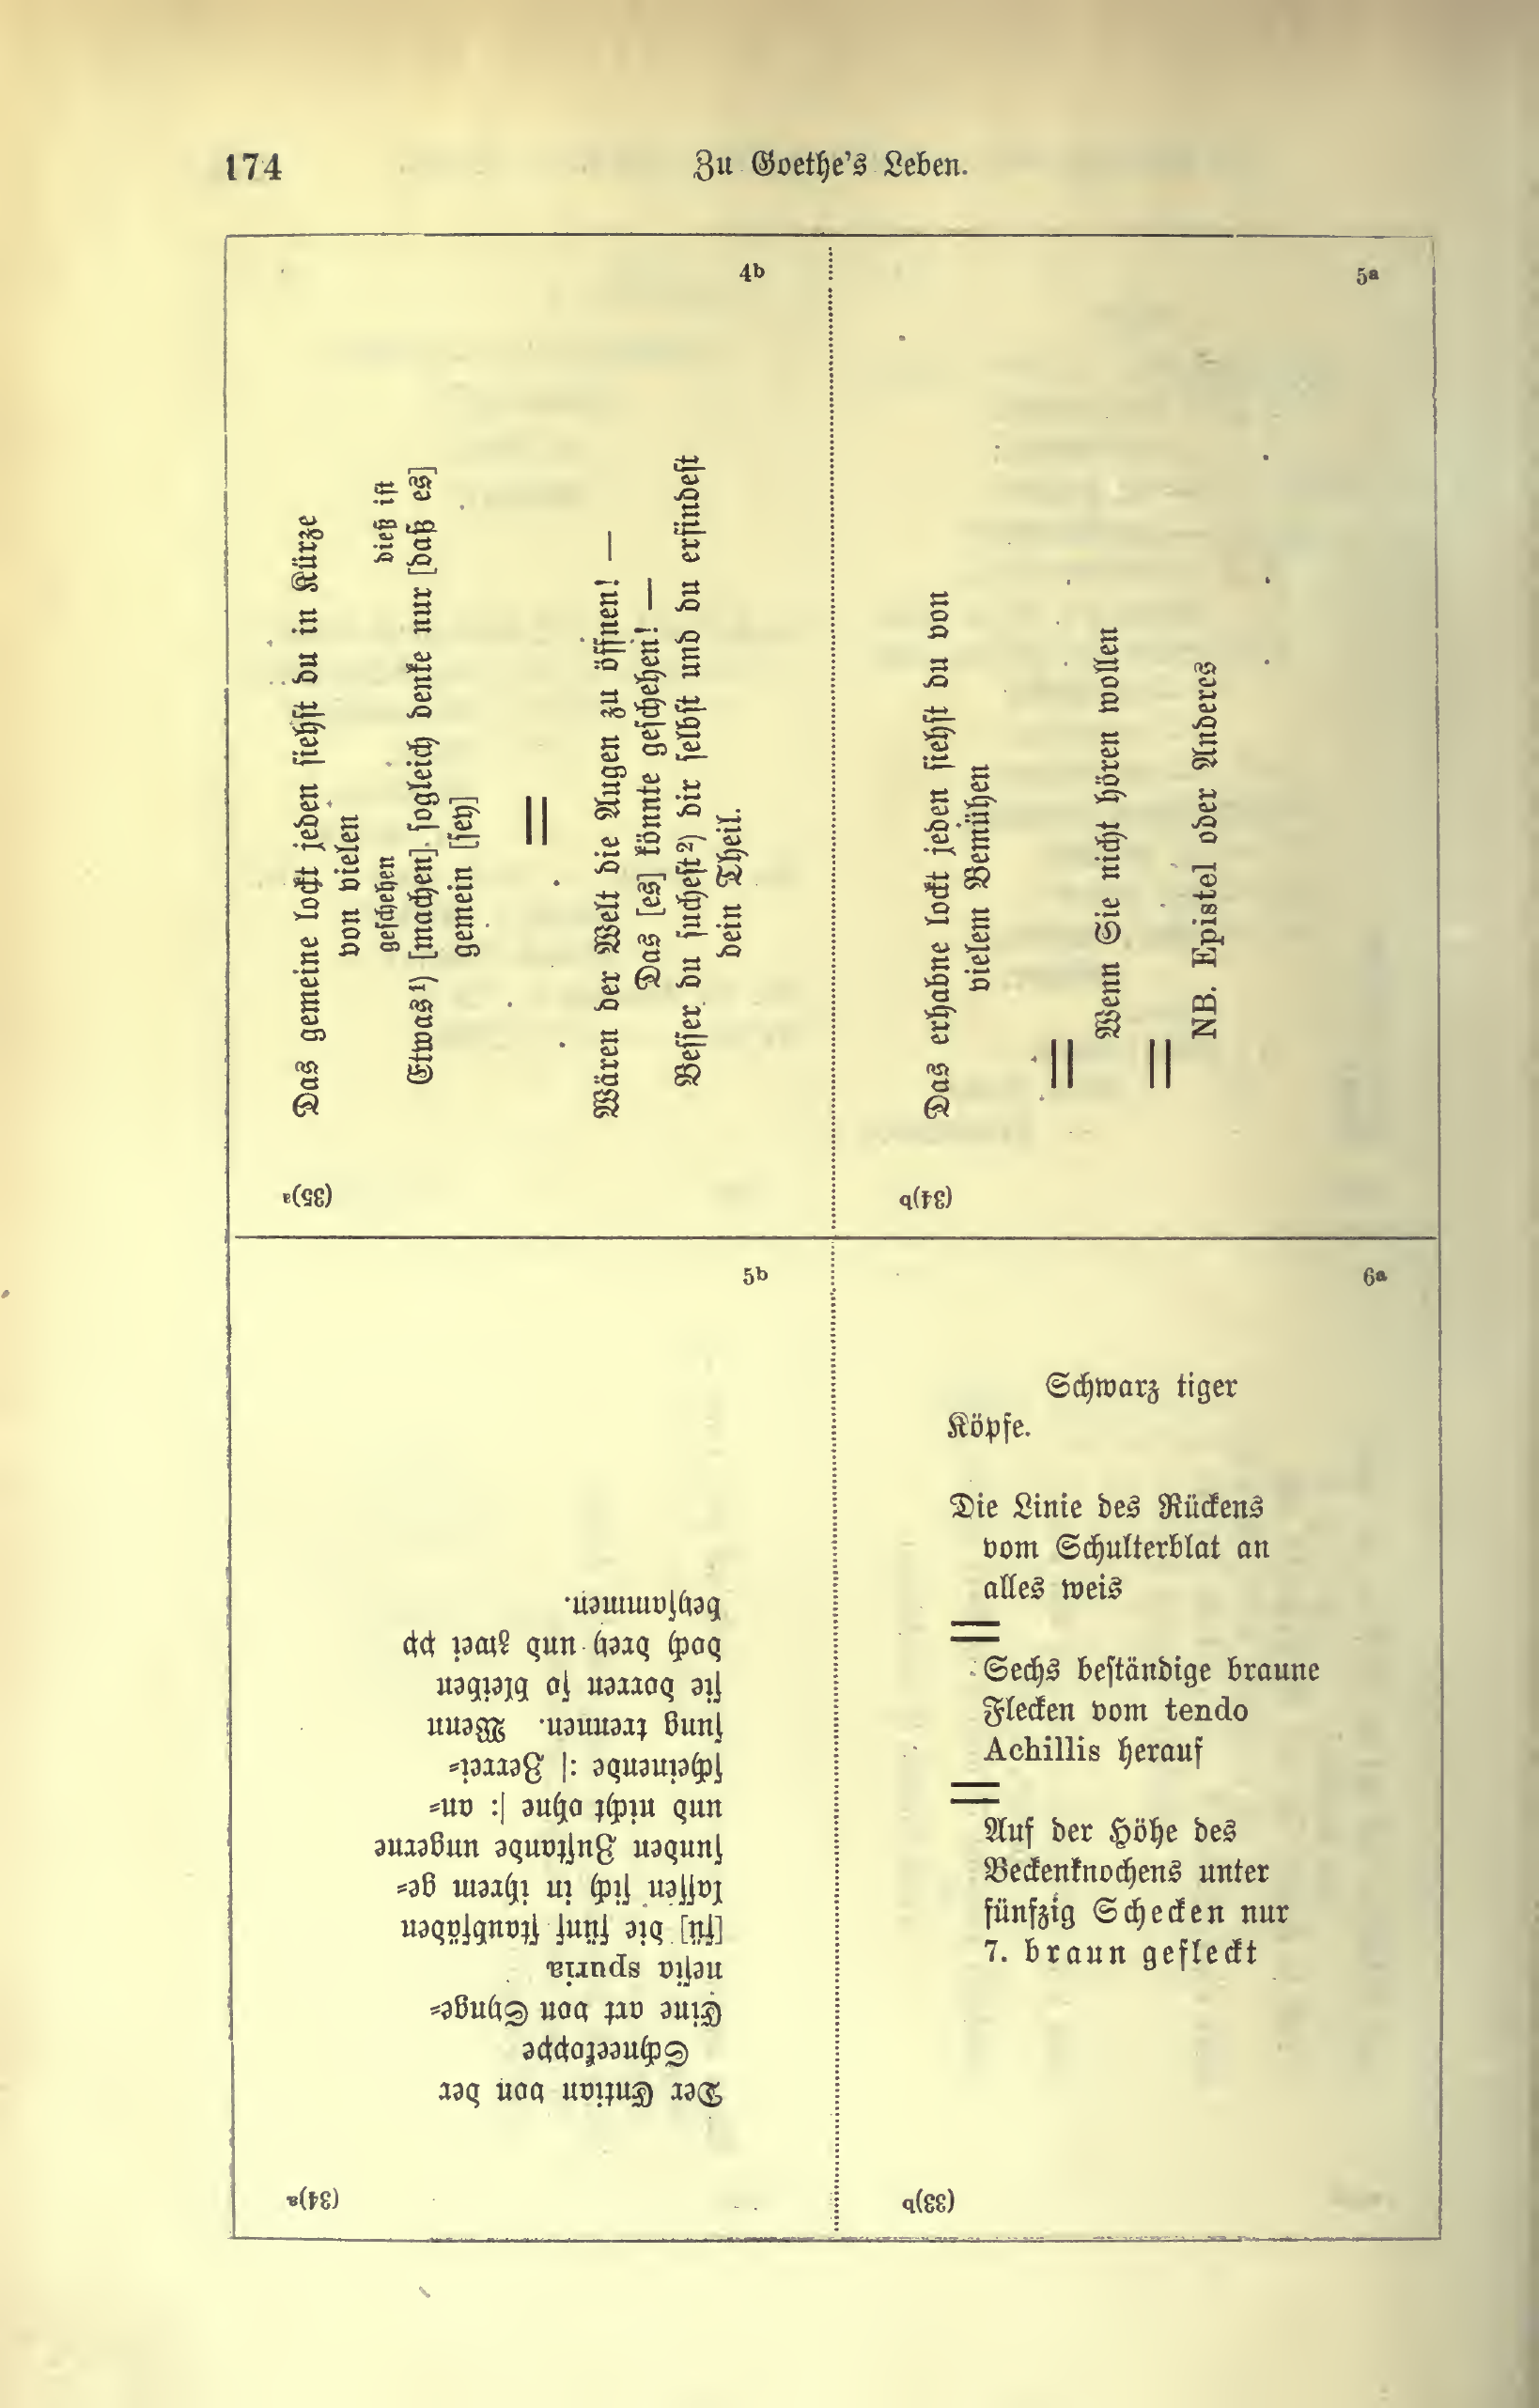 174
Zu Goethe's Leben.
4b
Das gemeine lockt jeden siehst du in Kürze
von vielen
geschehen dieß ist
Etwas¹) [machen] sogleich denke nur [daß es]
gemein [sey]
=
Wären der Welt die Augen zu öffnen! —
Das [es] könnte geschehen! —
Besser du suchest²) dir selbst und du erfindest
dein Theil.
(35)a
5a
Das erhabne lockt jeden siehst du von
vielem Bemühen
=
Wenn Sie nicht hören wollen
=
NB. Epistel oder Anderes
(34)b
5b
Der Entian von der
Schneekoppe
Eine art von Synge=
nesia spuria
[su] die fünf staubfäden
lassen sich in ihrem ge=
sunden Zustande ungerne
und nicht ohne |: an=
scheinende :| Zerrei=
sung trennen. Wenn
sie dorren so bleiben
doch drey und zwei pp
beysammen.
(34)a
6a
Schwarz tiger
Köpfe.
Die Linie des Rückens
vom Schulterblat an
alles weis
=
Sechs beständige braune
Flecken vom tendo
Achillis herauf
=
Auf der Höhe des
Beckenknochens unter
fünfzig Schecken nur
7. braun gefleckt
(33)b